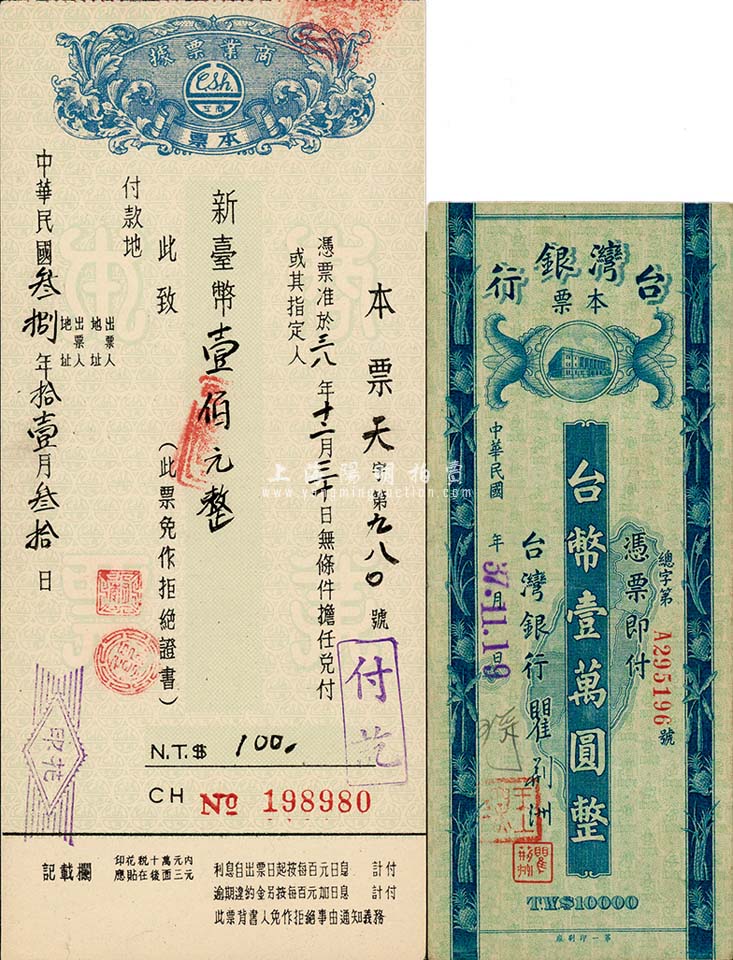 商業票據
C.S.h.
商工
本票
本票天字第九八〇號
憑票准於三八年十二月三十日無條件擔任兌付
或其指定人
此致
新臺幣壹佰元整
(此票免作拒絕證書)
付款地
出票人
地址
出票人
地址
中華民國叁捌年拾壹月叁拾日
付訖
印花
N.T.$ 100.
CH No 198980
記載欄
印花稅十萬元內
應貼在後面三元
利息自出票日起按每百元日息 計付
逾期違約金另按每百元加日息 計付
此票背書人免作拒絕事由通知義務
台灣銀行
本票
總字第A295196號
憑票即付
台幣壹萬圓整
台灣銀行瞿荊洲
中華民國 年 月 日
37.11.19
瞿荊洲
TW$10000
第一印刷廠
上海陽明拍賣